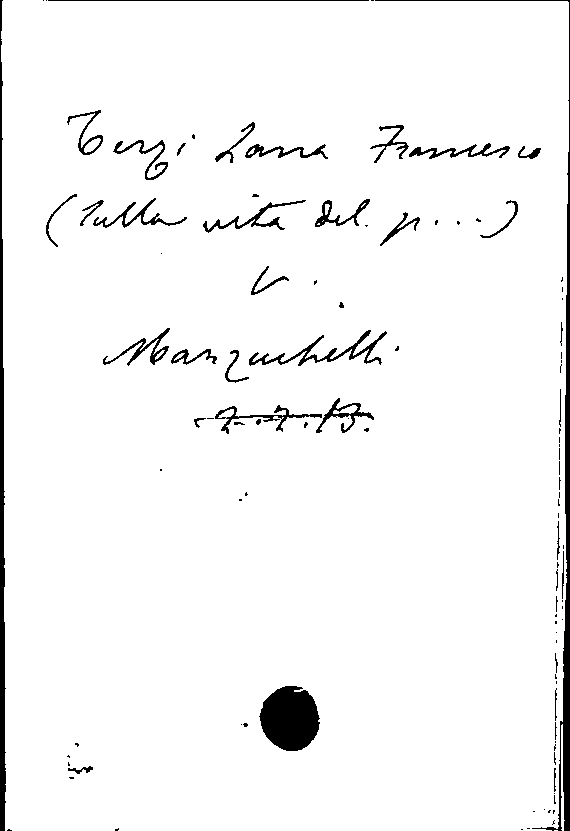 Terzi Lana Francesco
(Sulla vita del p...)
V.
Mazzuchelli
2.2.13.